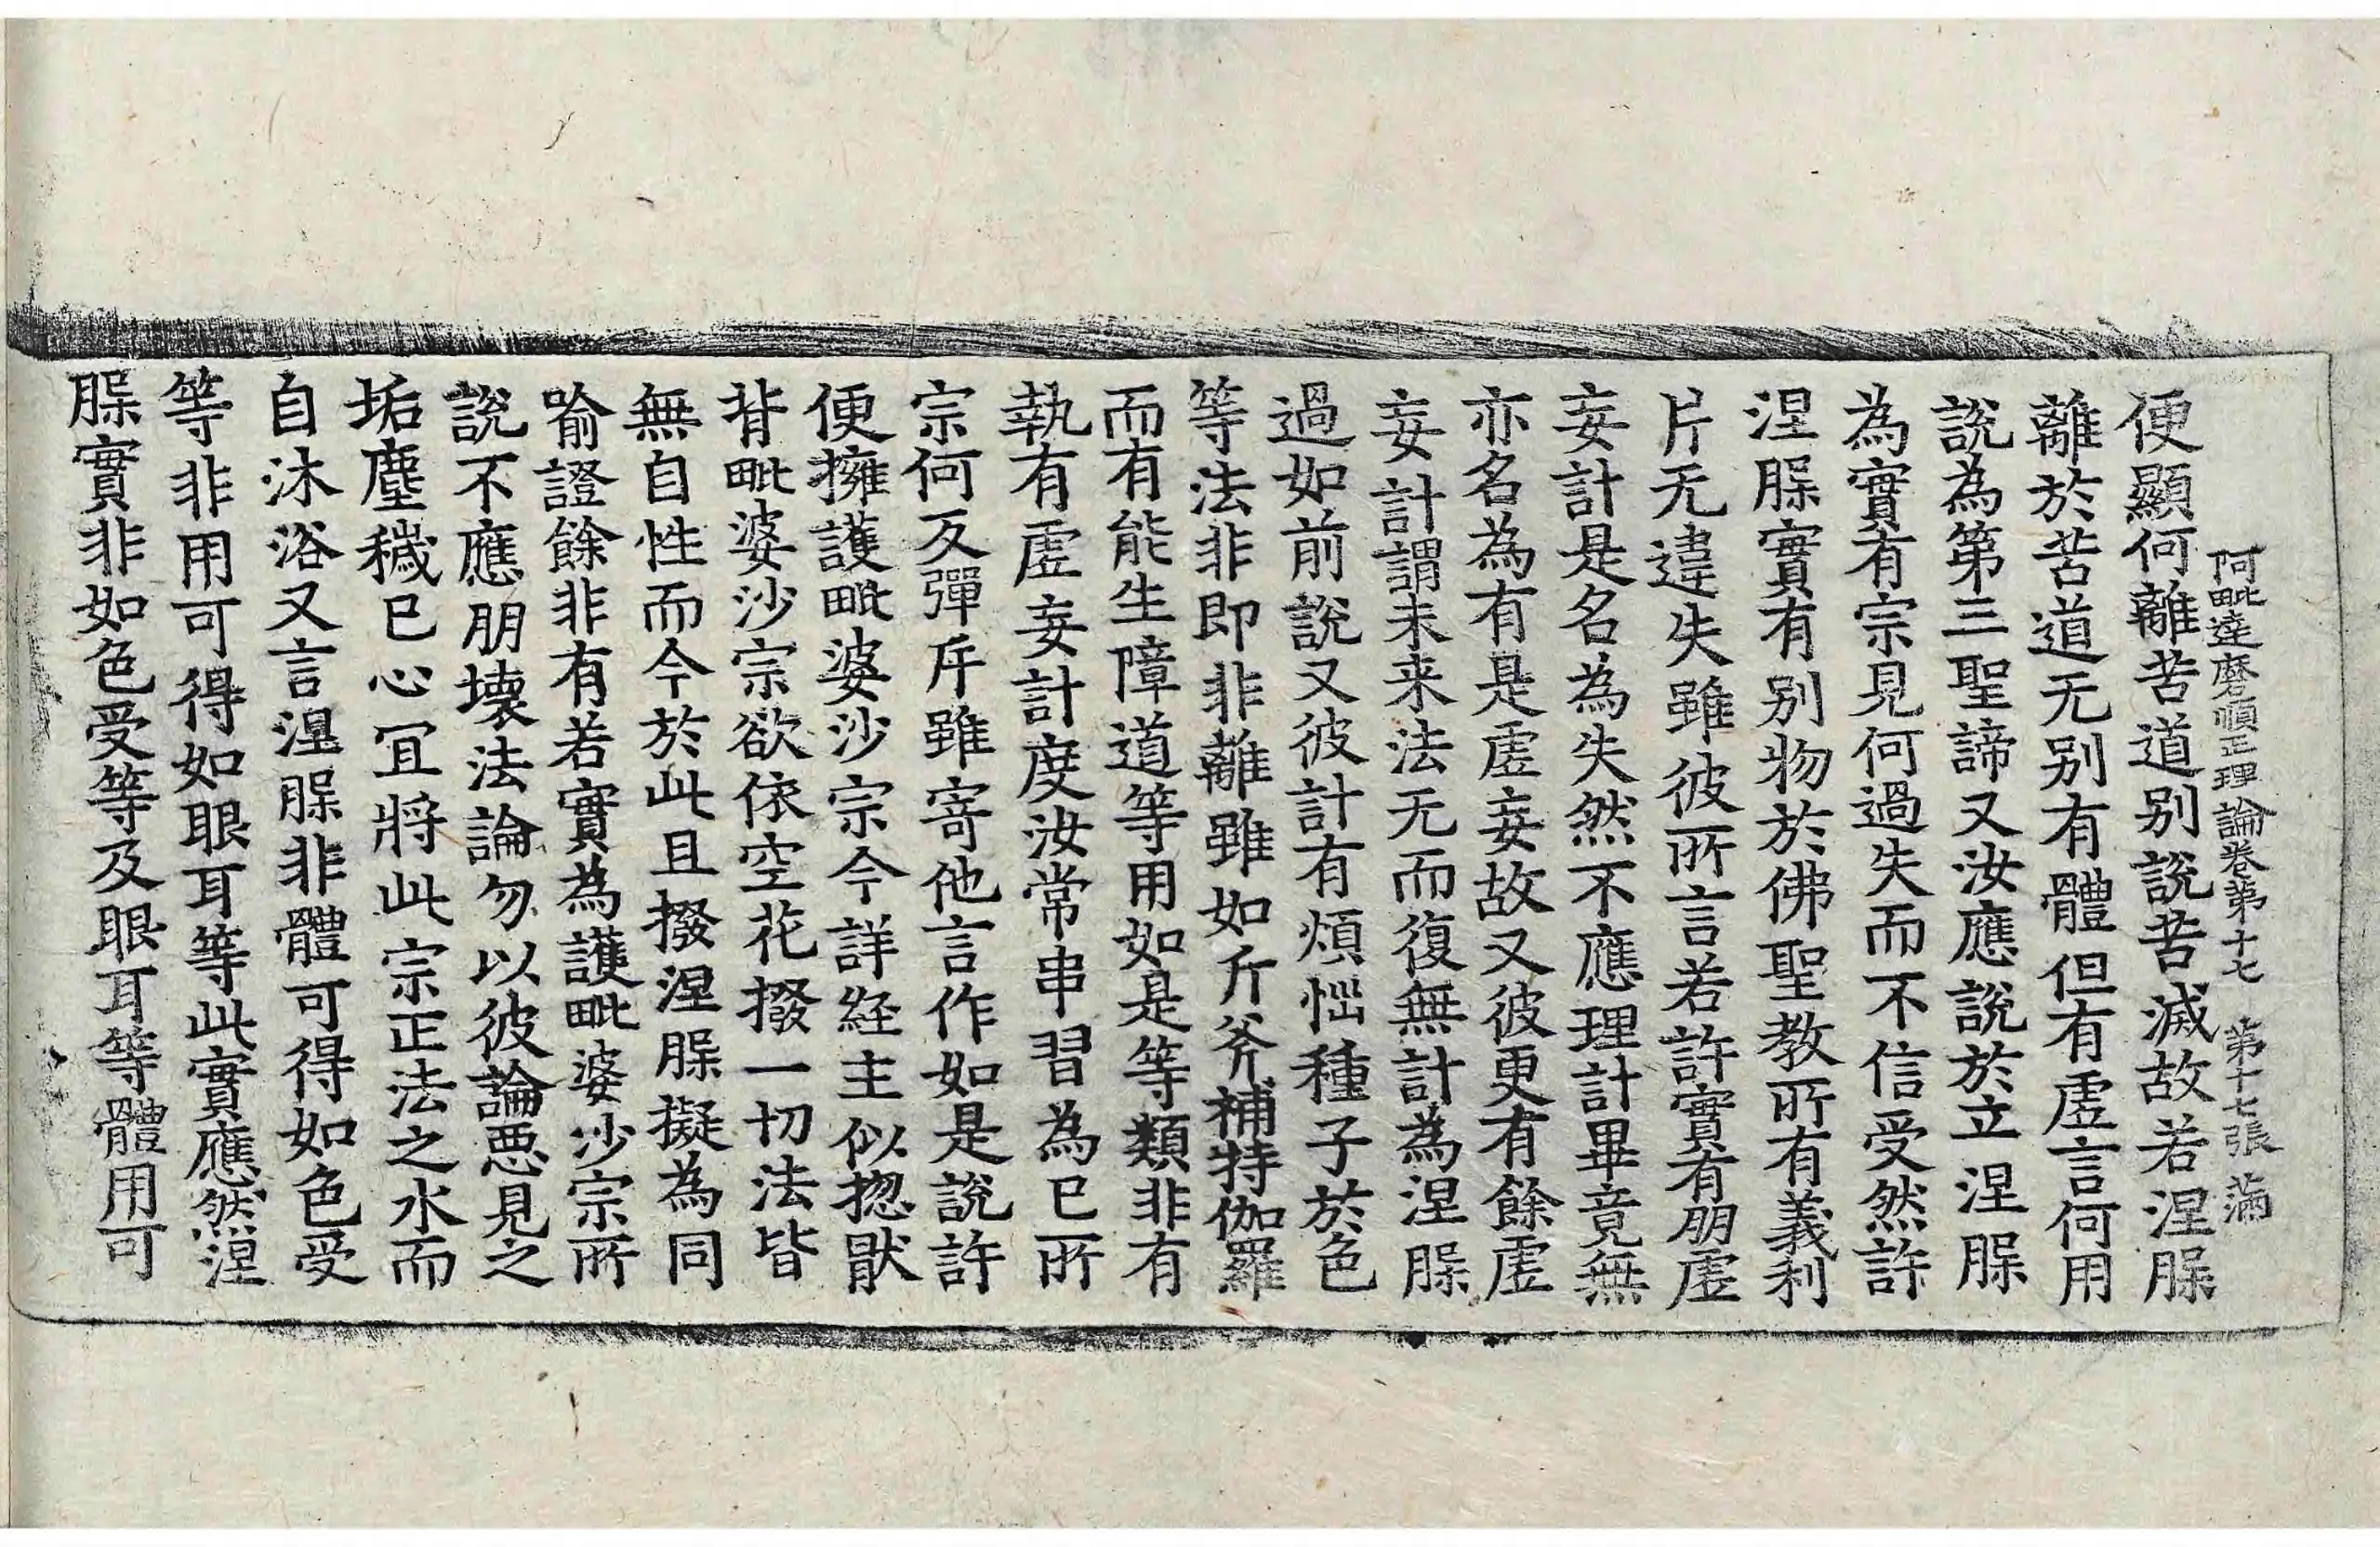 阿毗達磨順正理論卷第十七 第十七張 滿
便顯何離苦道別說苦滅故若涅脲
離於苦道无別有體但有虛言何用
說為第三聖諦又汝應說於立涅脲
為實有宗見何過失而不信受然許
涅脲實有別物於佛聖教所有義利
片无違失雖彼所言若許實有朋虛
妄計是名為失然不應理計畢竟無
亦名為有是虛妄故又彼更有餘虛
妄計謂未来法无而復無計為涅脲
過如前說又彼計有煩惱種子於色
等法非即非離雖如斤斧補特伽羅
而有能生障道等用如是等類非有
執有虛妄計度汝常串習為已所
宗何反彈斥雖寄他言作如是說許
便擁護毗婆沙宗今詳経主似揔猒
背毗婆沙宗欲依空花撥一切法皆
無自性而今於此且撥涅脲擬為同
喻證餘非有若實為護毗婆沙宗所
說不應朋壞法論勿以彼論惡見之
垢塵穢已心冝將此宗正法之水而
自沐浴又言涅脲非體可得如色受
等非用可得如眼耳等此實應然涅
脲實非如色受等及眼耳等體用可